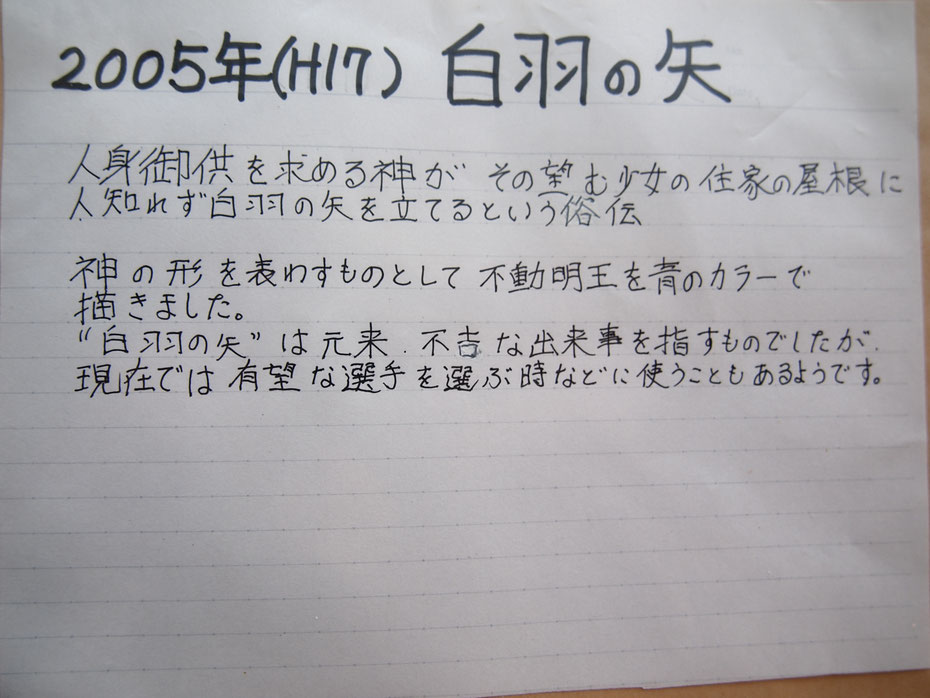 2005年(H17) 白羽の矢
人身御供を求める神が その望む少女の住家の屋根に
人知れず白羽の矢を立てるという俗伝
神の形を表わすものとして 不動明王を青のカラーで
描きました。
"白羽の矢" は元来、不吉な出来事を指すものでしたが、
現在では有望な選手を選ぶ時などに使うこともあるようです。